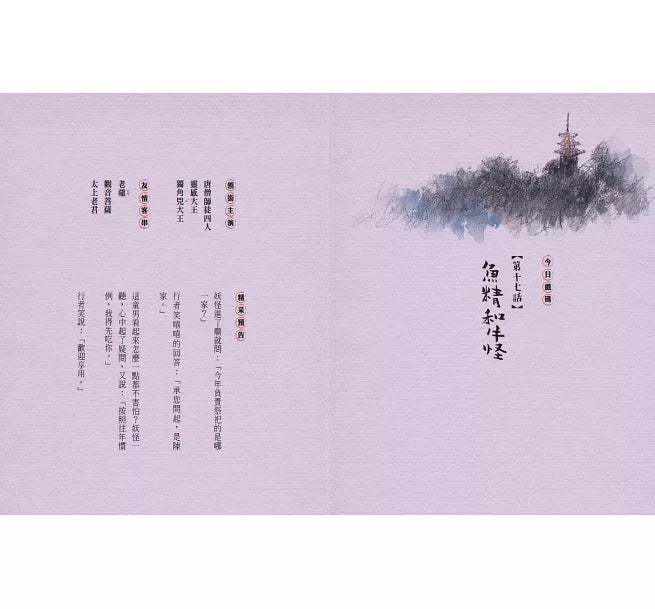 今日戲碼
【第十七話】
魚精和牛怪
領銜主演
唐僧師徒四人
靈感大王
獨角兕大王
友情客串
老黿
觀音菩薩
太上老君
精采預告
妖怪進了廟就問：「今年負責祭祀的是哪
一家？」
行者笑嘻嘻的回答：「承您問起，是陳
家。」
這童男看起來怎麼一點都不害怕？妖怪一
聽，心中起了疑問，又說：「按照往年慣
例，我得先吃你。」
行者笑說：「歡迎享用。」